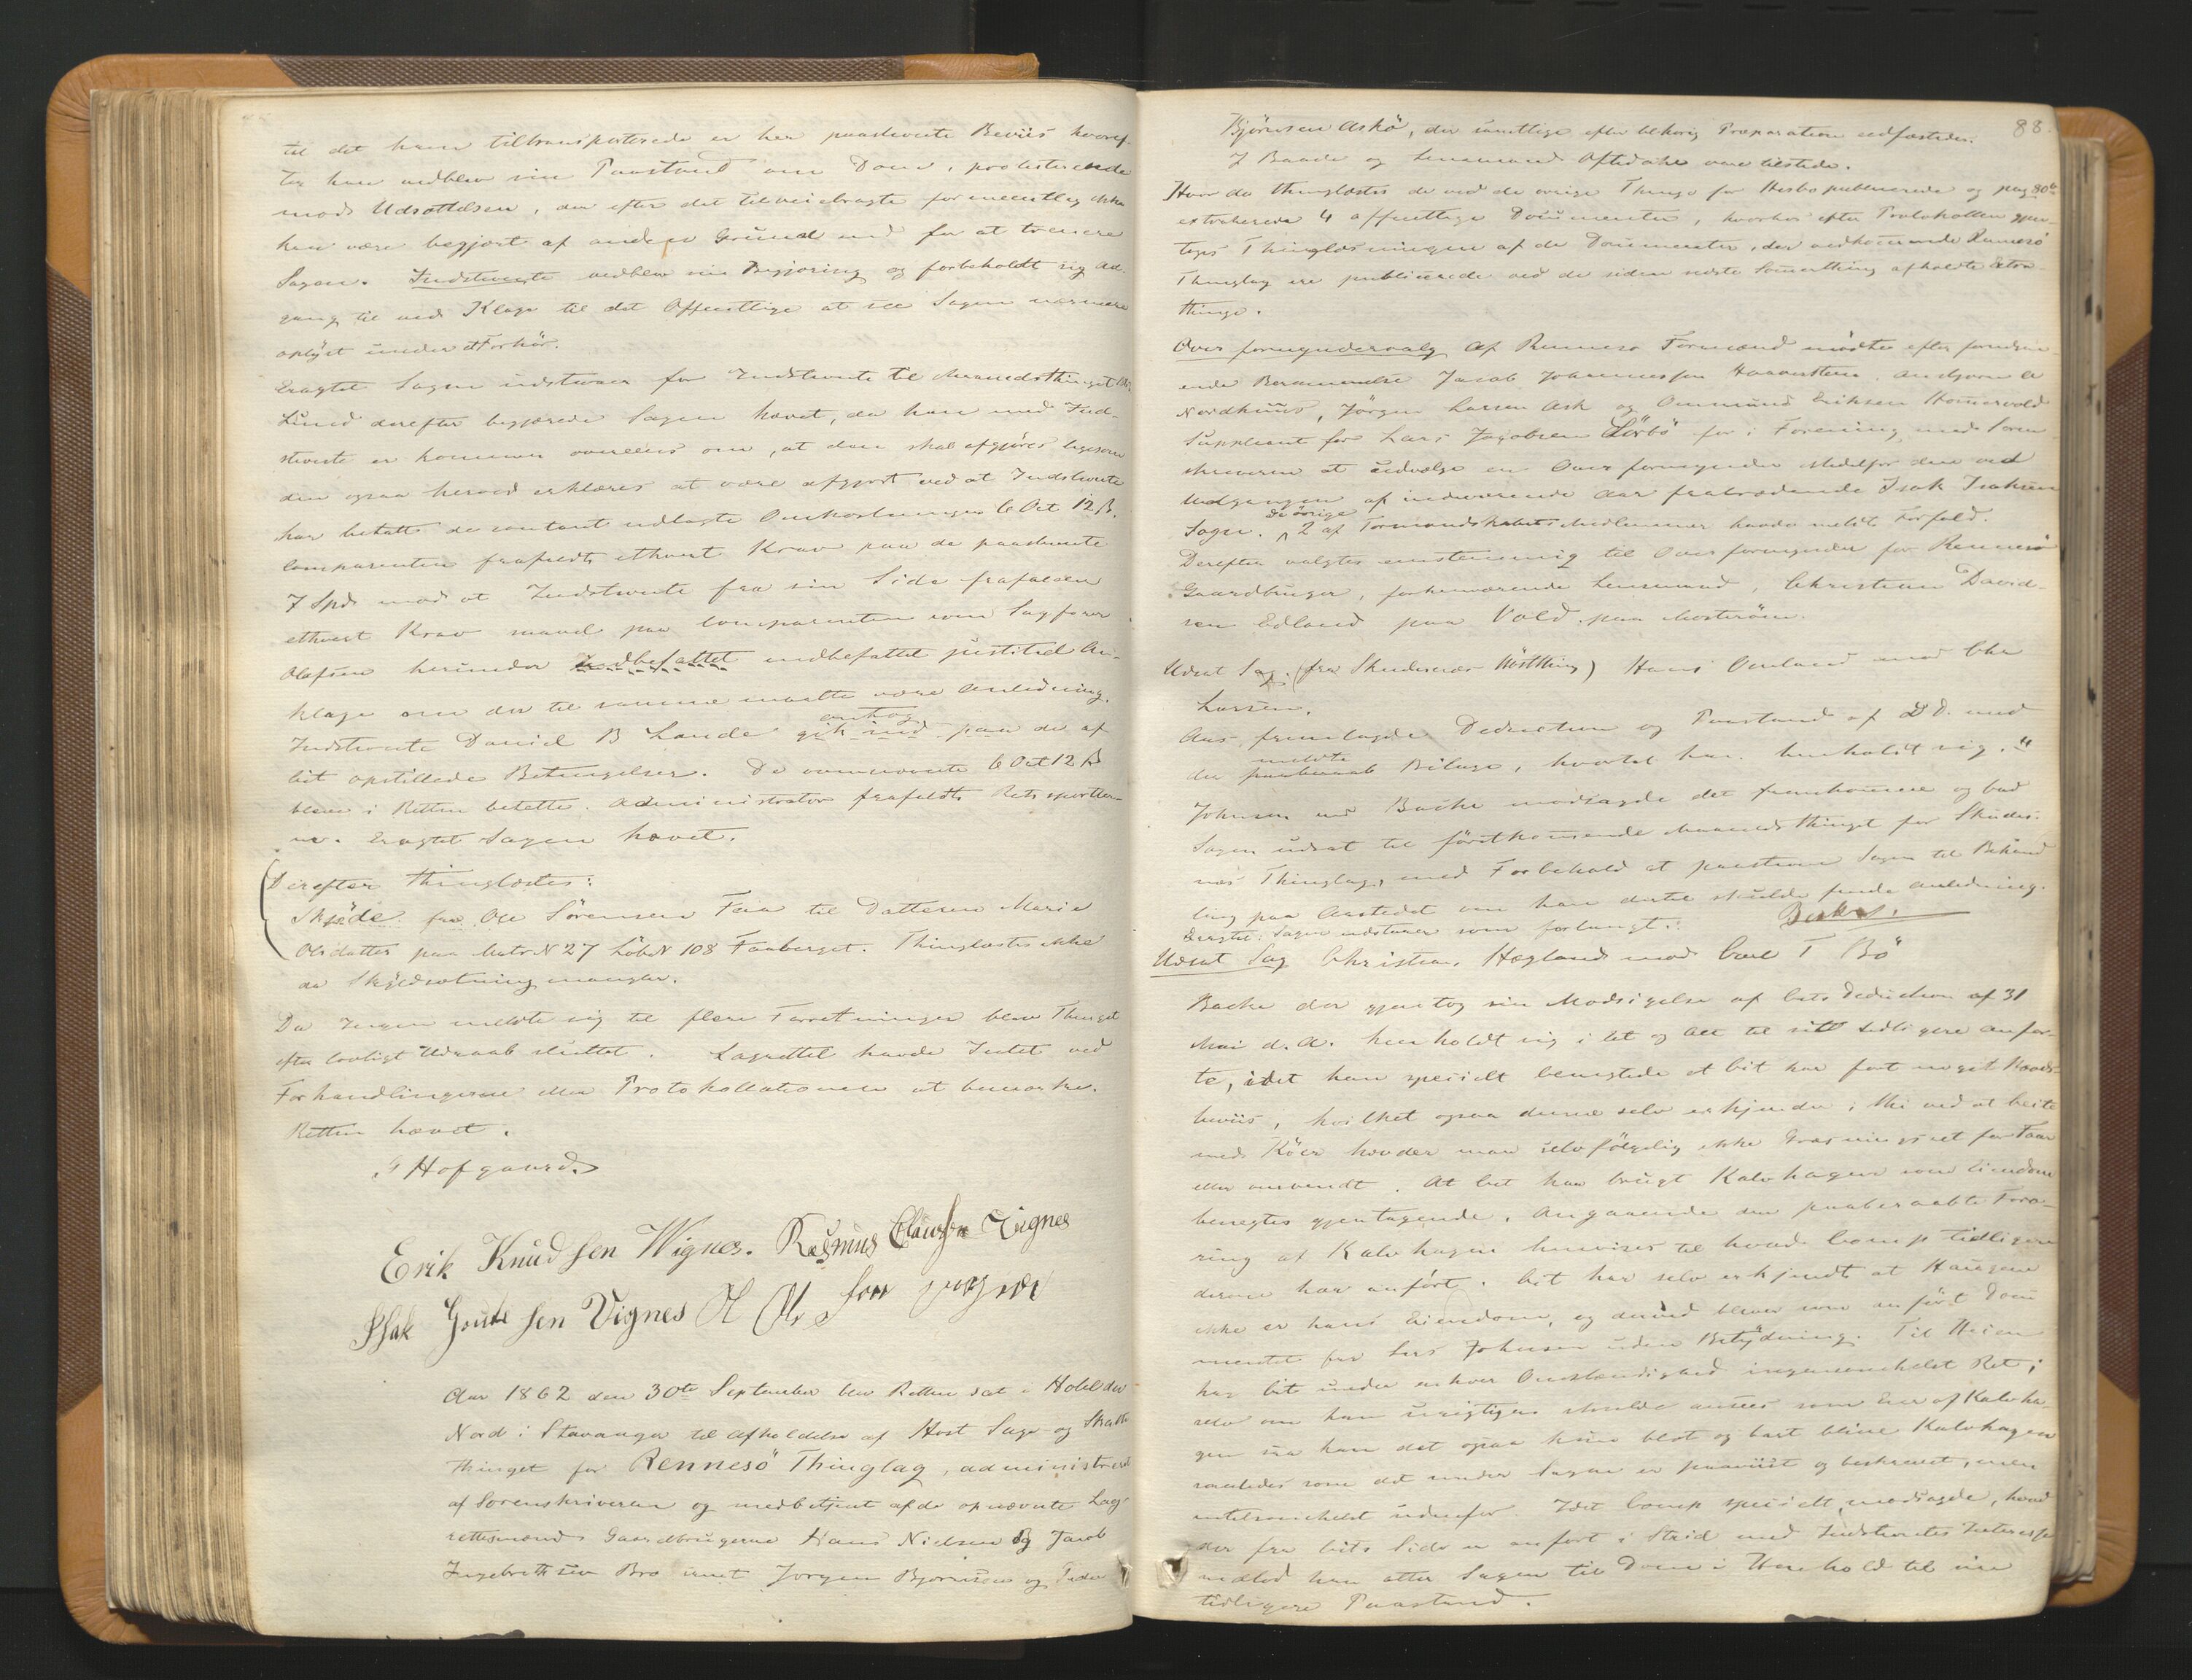 til det ham tiltransporterede er her paastevnte Beviis hvoref-
ter han vedblev sin Paastand om Dom, protesterende
mod Udsættelsen, der efter det tilveiebragte formeentlig ikke
kan være begjært af anden Grund end for at trenere
Sagen. Indstevnte vedblev sin Begjæring og forbeholdt sig Ad-
gang til ved Klage til det Offentlige at see Sagen nærmere
oplyst under et Forhör.
Eragtet Sagen udstaaer for Indstevnte til Maanedsthinget
Lund derefter begjærede Sagen hævet, da han med Ind-
stevnte er kommen overeens om, at den skal afgjöres ligesom
den ogsaa herved erklæres at være afgjort ved at Indstevnte
har betalt de contant udlagte Omkostninger 6 Ort 12 ß.
Comparenten frafaldt ethvert Krav paa de paastevnte
7 Spd mod at Indstevnte fra sin Side frafalder
ethvert Krav mod paa Comparenten som Sagförer
Olafsen herunder indbefattet indbefattet justitiel An-
klage om der til samme maatte være Anledning.
Indstevnte Daniel B Lande gik ind antog paa de af
Cit opstillede Betingelser. De omnævnte 6 Ort 12 ß
bleve i Retten betalte. Administrator frafaldt Retssportler-
ne. Eragtet Sagen hævet.
Derefter thinglæstes:
Skjöde fra Ole Sörensen Faa til Datteren Marie
Olsdatter paa Matr N 27 LöbN 108 Faaberget. Thinglæstes ikke
da Skyldsætning mangler.
Da Ingen meldte sig til flere Forretninger blev Thinget
efter lovligt Udraab sluttet. Lagrettet havde Intet ved
Forhandlingerne eller Protokollationen at bemærke.
Retten hævet.
G Hofgaard
Erik Knudsen Wignes. Rasmus Clausen Vignes
Isak Goutesen Vignes
Aar 1862 den 30te September blev Retten sat i Hotel du
Nord i Stavanger til Afholdelse af Höst Sage og Skatte
thinget for Rennesö Thinglag, administreret
af Sorenskriveren og medbetjent af de opnævnte Lag-
rettesmænd Gaardbrugerne Hans Nielsen og Jacob
Ingebrethsen Bro samt Jörgen Bjørnsen og Peder
88.
Bjørnsen Askö, der samtlige efter behörig Præparation edfæstedes.
J Baade og Lensmand Oftedahl vare tilstede.
Hvor da thinglæstes de ved de övrige Thinge for Hesbö publicerede og pag 80
extraherede 4 offentlige Documenter, hvorhos efter Protokollen gjen-
toges Thinglæsningen af de Documenter, der vedkommende Rennesö
Thinglag ere publicerede ved de siden næste Sommerthing afholdte Extra
thinge.
Over formyndervalg af Rennesö Formænd mödte efter foregaa-
ende Berammelse Jacob Johannessen Haaversteen, Andfinn
Nordhuus, Jörgen Larsen Ask og Ommund Eriksen Homersvold
Suppleant for Lars Jacobsen Sörbö for i Forening med Soren-
skriveren at udvælge en Over formynder istedetfor den ved
Udgangen af indeværende Aar fratrædende Isak Isaksen
Sogn. De övrige 2 af Formandskabets Medlemmer havde meldt Forfald.
Derefter valgtes eenstemmig til Overformynder for Rennesö
Gaardbruger, forhenværende Lensmand, Christian David-
sen Edland paa Vold paa Mosteröen.
Udsat Sag (fra Skudesnæs Höstthing) Hans Omland mod Chr
Larsen.
Aas fremlagde Deduction og Paastand af DD. med
der meldte paaberaabte Bilage, hvortil han henholdt sig. "
Johnsen ved Backe modsagde det fremkomne og bad
Sagen udsat til förstkommende Maanedsthinget for Skudes-
næs Thinglag, med Forbehold at paastevne Sagen til Behand
ling paa Aastedet om han dertil skulde finde Anledning.
Eragtet: Sagen udstaaer som forlangt. Beskr.
Udsat Sag Christian Hegland mod Carl T Bö
Backe der gjentog sin Modsigelse af Cits Deduction af 31
Mai d. A. henholdt sig i Et og Alt til sit tidligere Anför-
te, idet han specielt benegtede at Cit har fört noget Hævds-
beviis, hvilket ogsaa denne selv erkjender; thi ved at beite
med Köer hævder man selvfölgelig ikke Græsningsret for Faar
eller omvendt. At Cit har brugt Kalvhagen som Eiendom
benegtes gjentagende. Angaaende den paaberaabte Fora-
ring af Kalvhagen henvises til hvad Comp tidligere
derom har anfört. Cit har selv erkjendt at Haugene
ikke er hans Eiendom, og derved bliver som anfört Docu
mentet fra Lars Johnsen uden Betydning. Til Heien
har Cit under enhver Omstændighed ingensomhelst Ret;
selv om han urigtigen skulde ansees som Eier af Kalvha-
gen saa kan det ogsaa kun blot og bart blive Kalvhagen
saaledes som det under Sagen er paaviist og beskrevet, men
intetsomhelst udenfor. Idet Comp specielt modsagde, hvad
der fra Cits Side er anfört i Strid med Indstevntes Interesse
indlod han atter Sagen til Dom i Henhold til sin
tidligere Paastand.